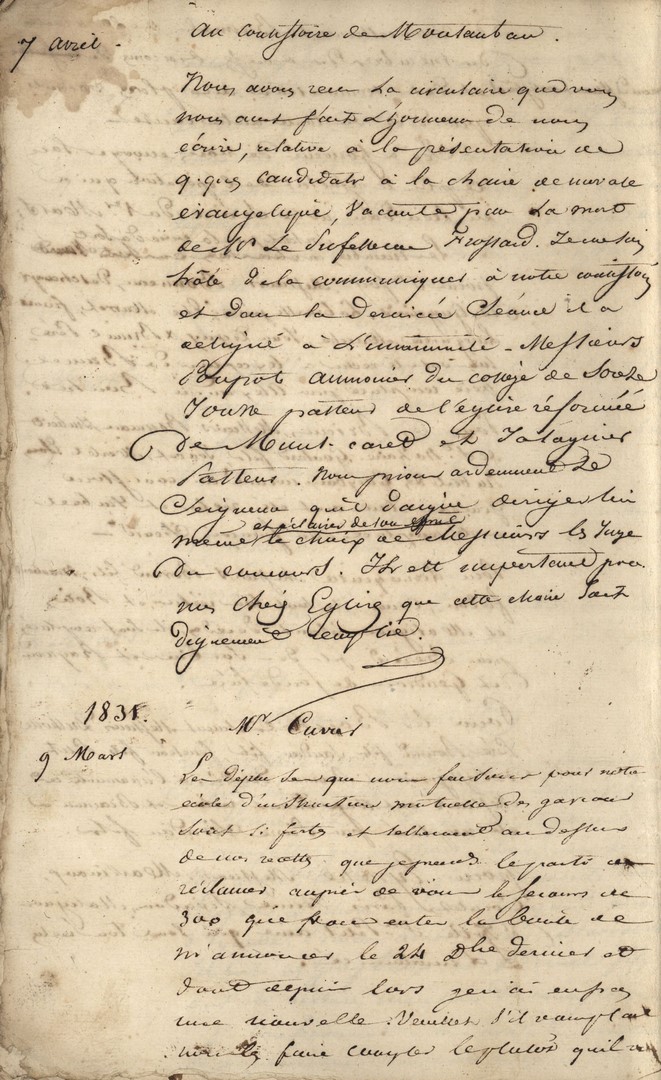 7 avril.
Au consistoire de Montauban.
Nous avons reçu la circulaire que vous
nous avez fait L'honneur de nous
écrire, relative à la présentation de
q.ques candidats à la chaire de morale
évangelique, Vacante par La mort
de Mr Le Professeur Frossard. Je me suis
hâté de la communiquer à notre consistoire
et dans la dernière Séance il a
designé à L'unanimité - Messieurs
aumonier du college de Soreze
pasteur de l'eglise réformée
de Mont-caret et
Pasteur. Nous prions ardemment Le
Seigneur qu'il daigne diriger lui
et éclairer de son esprit
même le choix de Messieurs les Juges
du concours. Il est important pour
nos chères Eglises que cette chaire soit
dignement remplie.
1831.
Mr Cuvier
9 Mars
Les dépenses que nous faisons pour notre
école d'instruction mutuelle des garcons
sont si fortes et tellement au dessus
de nos recettes que je prends le parti de
réclamer auprès de vous le secours de
300 que la bonté de
m'annoncer le 24 Dbre dernier et
dont depuis lors je n'ai eu
une nouvelle. Veuillez s'il vous plait
nous les faire compter le plutôt qu'il